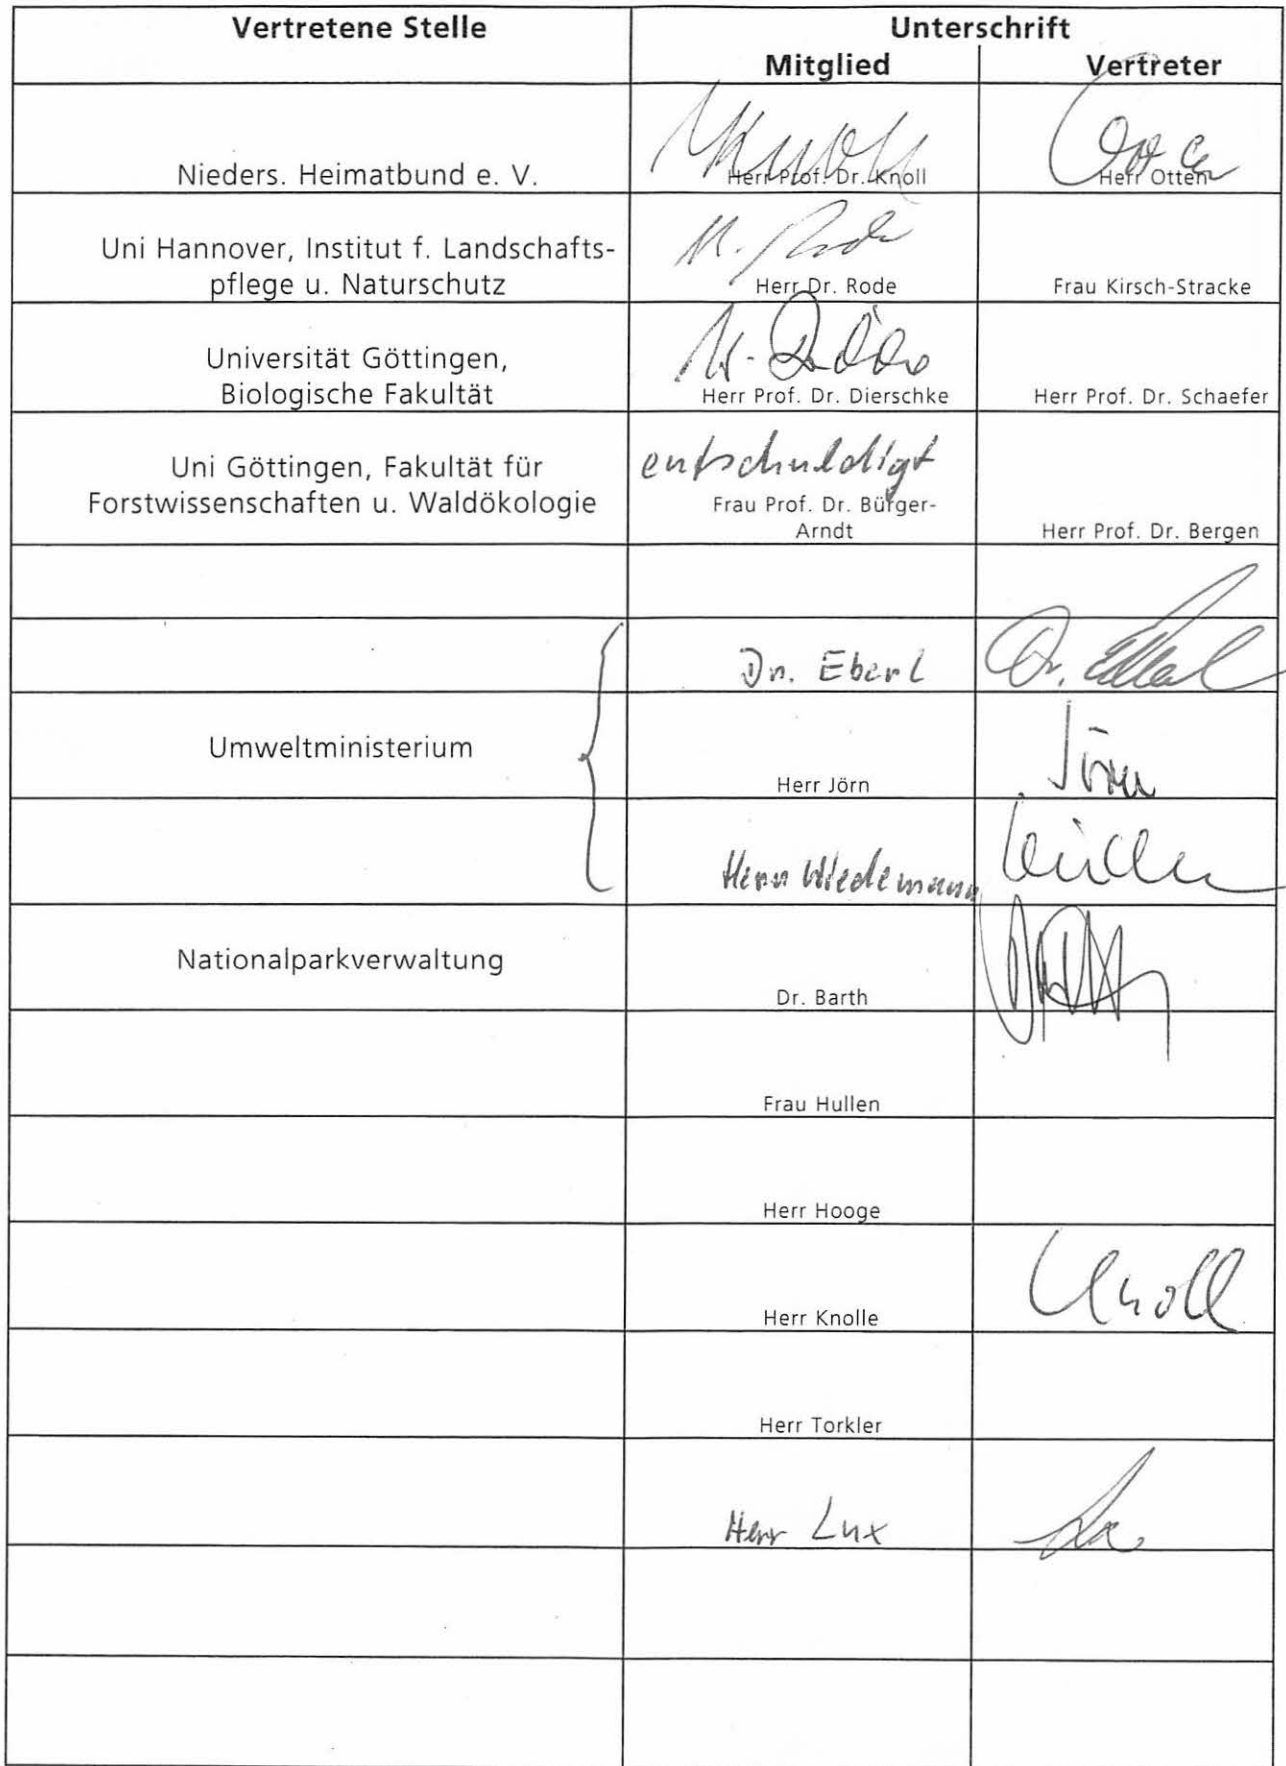 Vertretene Stelle
Unterschrift
Mitglied
Vertreter
Nieders. Heimatbund e. V.
Herr Prof. Dr. Knoll
Herr Otten
Uni Hannover, Institut f. Landschafts-
pflege u. Naturschutz
Herr Dr. Rode
Frau Kirsch-Stracke
Universität Göttingen,
Biologische Fakultät
Herr Prof. Dr. Dierschke
Herr Prof. Dr. Schaefer
Uni Göttingen, Fakultät für
Forstwissenschaften u. Waldökologie
entschuldigt
Frau Prof. Dr. Bürger-
Arndt
Herr Prof. Dr. Bergen
Dr. Eberl
Umweltministerium
Herr Jörn
Jörn
Herr Wiedemann
Nationalparkverwaltung
Dr. Barth
Frau Hullen
Herr Hooge
Herr Knolle
Herr Torkler
Herr Lux